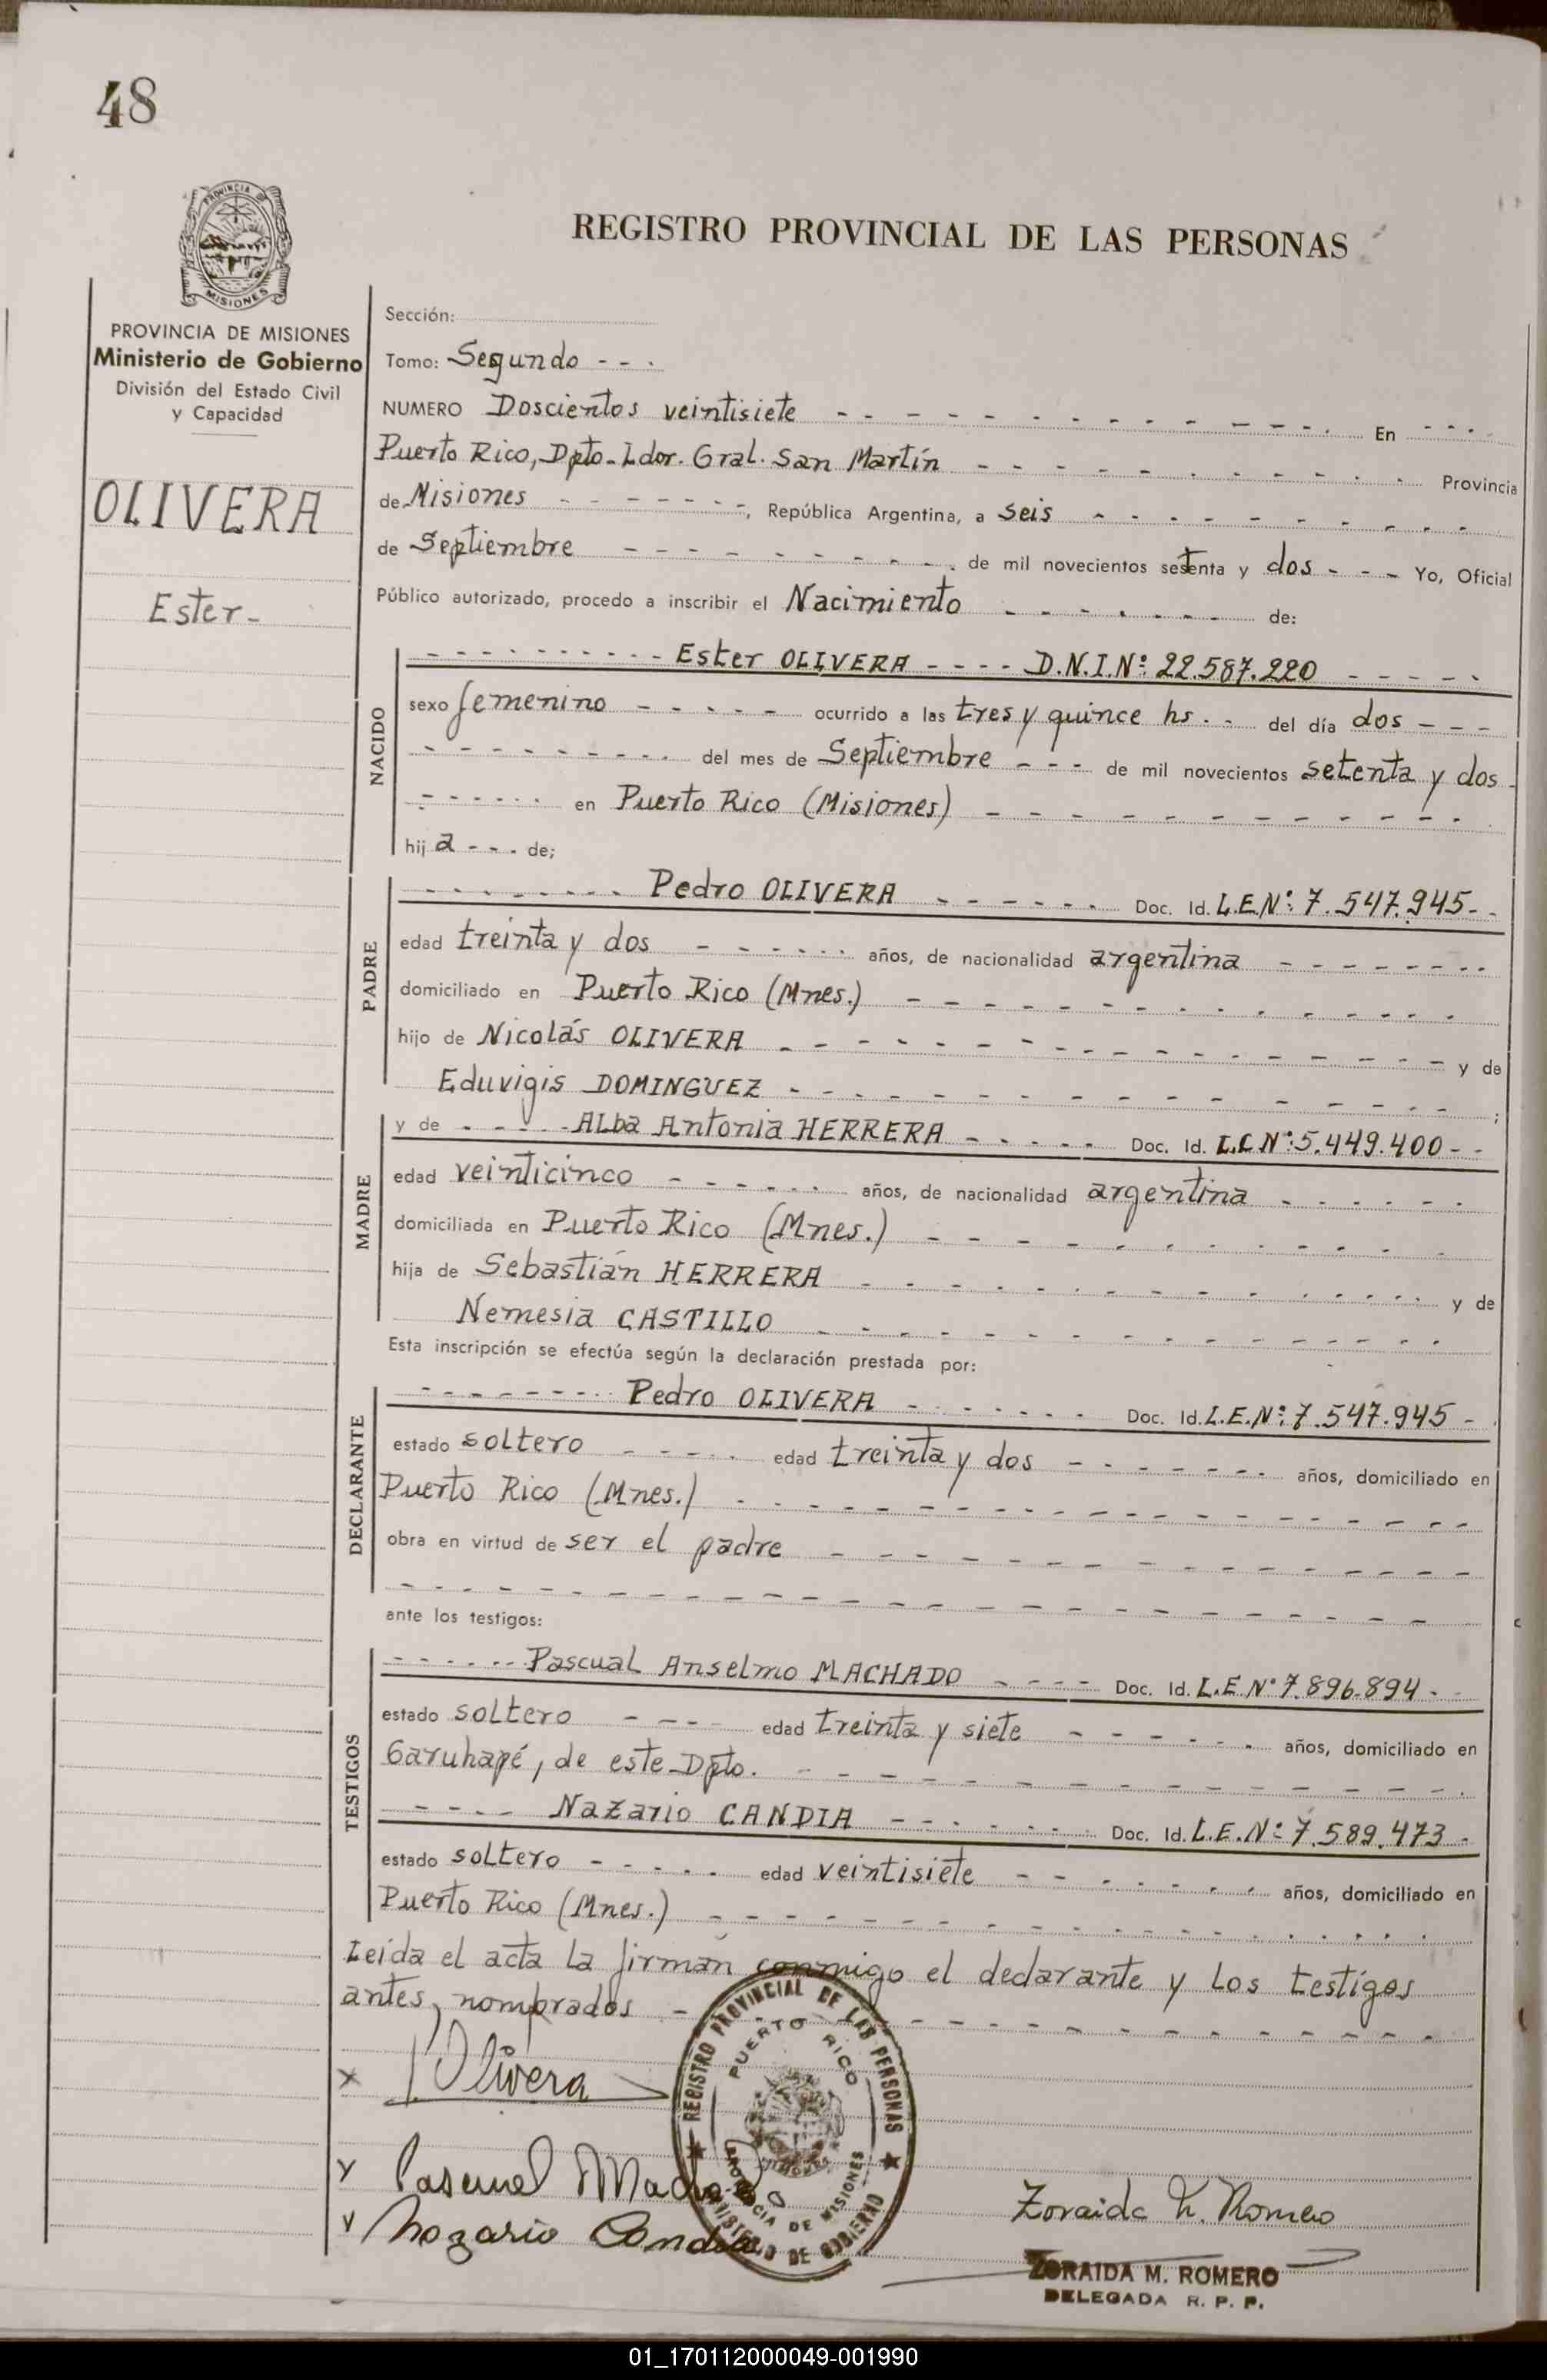 48
PROVINCIA
MISIONES
REGISTRO PROVINCIAL DE LAS PERSONAS
PROVINCIA DE MISIONES
Ministerio de Gobierno
División del Estado Civil
y Capacidad
OLIVERA
Ester-
Sección:
Tomo: Segundo - - .
NUMERO Doscientos veintisiete - - - En - - -
Puerto Rico, Dpto. Ldor. Gral. San Martín - - - Provincia
de Misiones - - -, República Argentina, a seis - - -
de Septiembre - - - de mil novecientos setenta y dos - - - Yo, Oficial
Público autorizado, procedo a inscribir el Nacimiento - - - de:
NACIDO
- - - Ester OLIVERA - - - - D.N.I.Nº: 22.587.220 - - -
sexo femenino - - - ocurrido a las tres y quince hs. - del día dos - - -
- - - del mes de Septiembre - - - de mil novecientos setenta y dos -
- - - en Puerto Rico (Misiones) - - -
hij a - - - de;
PADRE
- - - Pedro OLIVERA - - - Doc. Id. L.E.Nº: 7.547.945 - -
edad treinta y dos - - - años, de nacionalidad argentina - - -
domiciliado en Puerto Rico (Mnes.) - - -
hijo de Nicolás OLIVERA - - - y de
Eduvigis DOMINGUEZ - - - ;
MADRE
y de - - - Alba Antonia HERRERA - - - Doc. Id. L.C Nº: 5.449.400 - -
edad veinticinco - - - años, de nacionalidad argentina - - -
domiciliada en Puerto Rico (Mnes.) - - -
hija de Sebastián HERRERA - - - y de
Nemesia CASTILLO - - -
Esta inscripción se efectúa según la declaración prestada por:
DECLARANTE
- - - Pedro OLIVERA - - - Doc. Id. L.E.Nº: 7.547.945 -
estado soltero - - - edad treinta y dos - - - años, domiciliado en
Puerto Rico (Mnes.) - - -
obra en virtud de ser el padre - - -
- - -
ante los testigos:
TESTIGOS
- - - Pascual Anselmo MACHADO - - - Doc. Id. L.E Nº 7.896.894 - -
estado soltero - - - edad treinta y siete - - - años, domiciliado en
Garuhapé, de este Dpto. - - -
- - - Nazario CANDIA - - - Doc. Id. L.E.Nº: 7.589.473 -
estado soltero - - - edad veintisiete - - - años, domiciliado en
Puerto Rico (Mnes.) - - -
Leida el acta la firman conmigo el declarante y los testigos
antes nombrados - - -
REGISTRO PROVINCIAL DE LAS PERSONAS
PUERTO RICO
PROVINCIA DE MISIONES
MINISTERIO DE GOBIERNO
x Olivera
Pascual Machado
Nazario Candia
Zoraida M. Romero
ZORAIDA M. ROMERO
DELEGADA R. P. P.
01_170112000049-001990